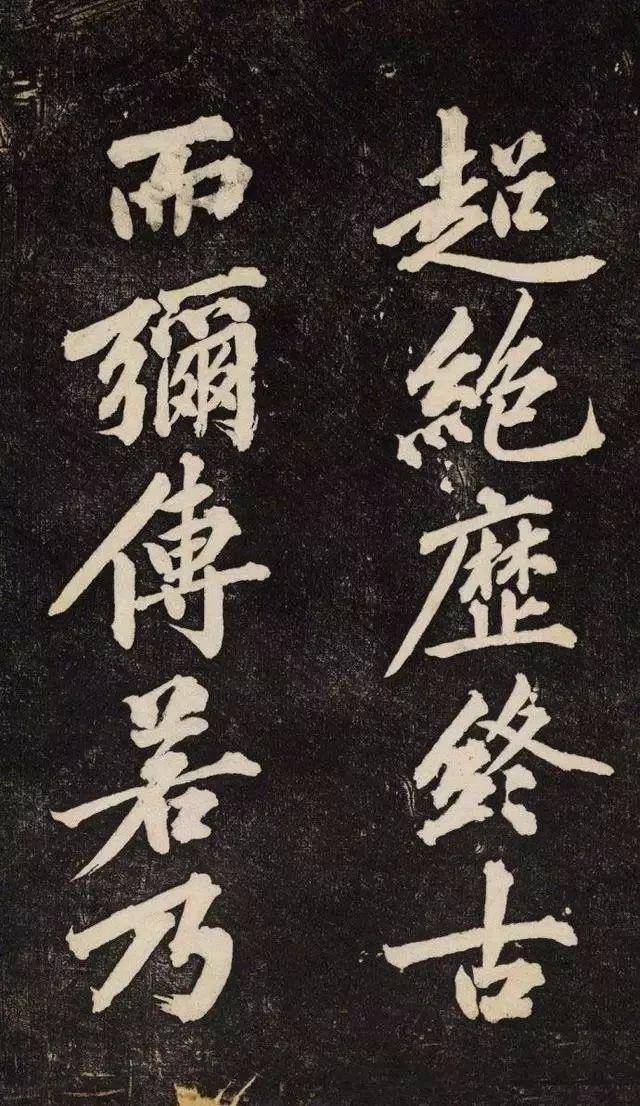 超絶歷終古
而彌傳若乃